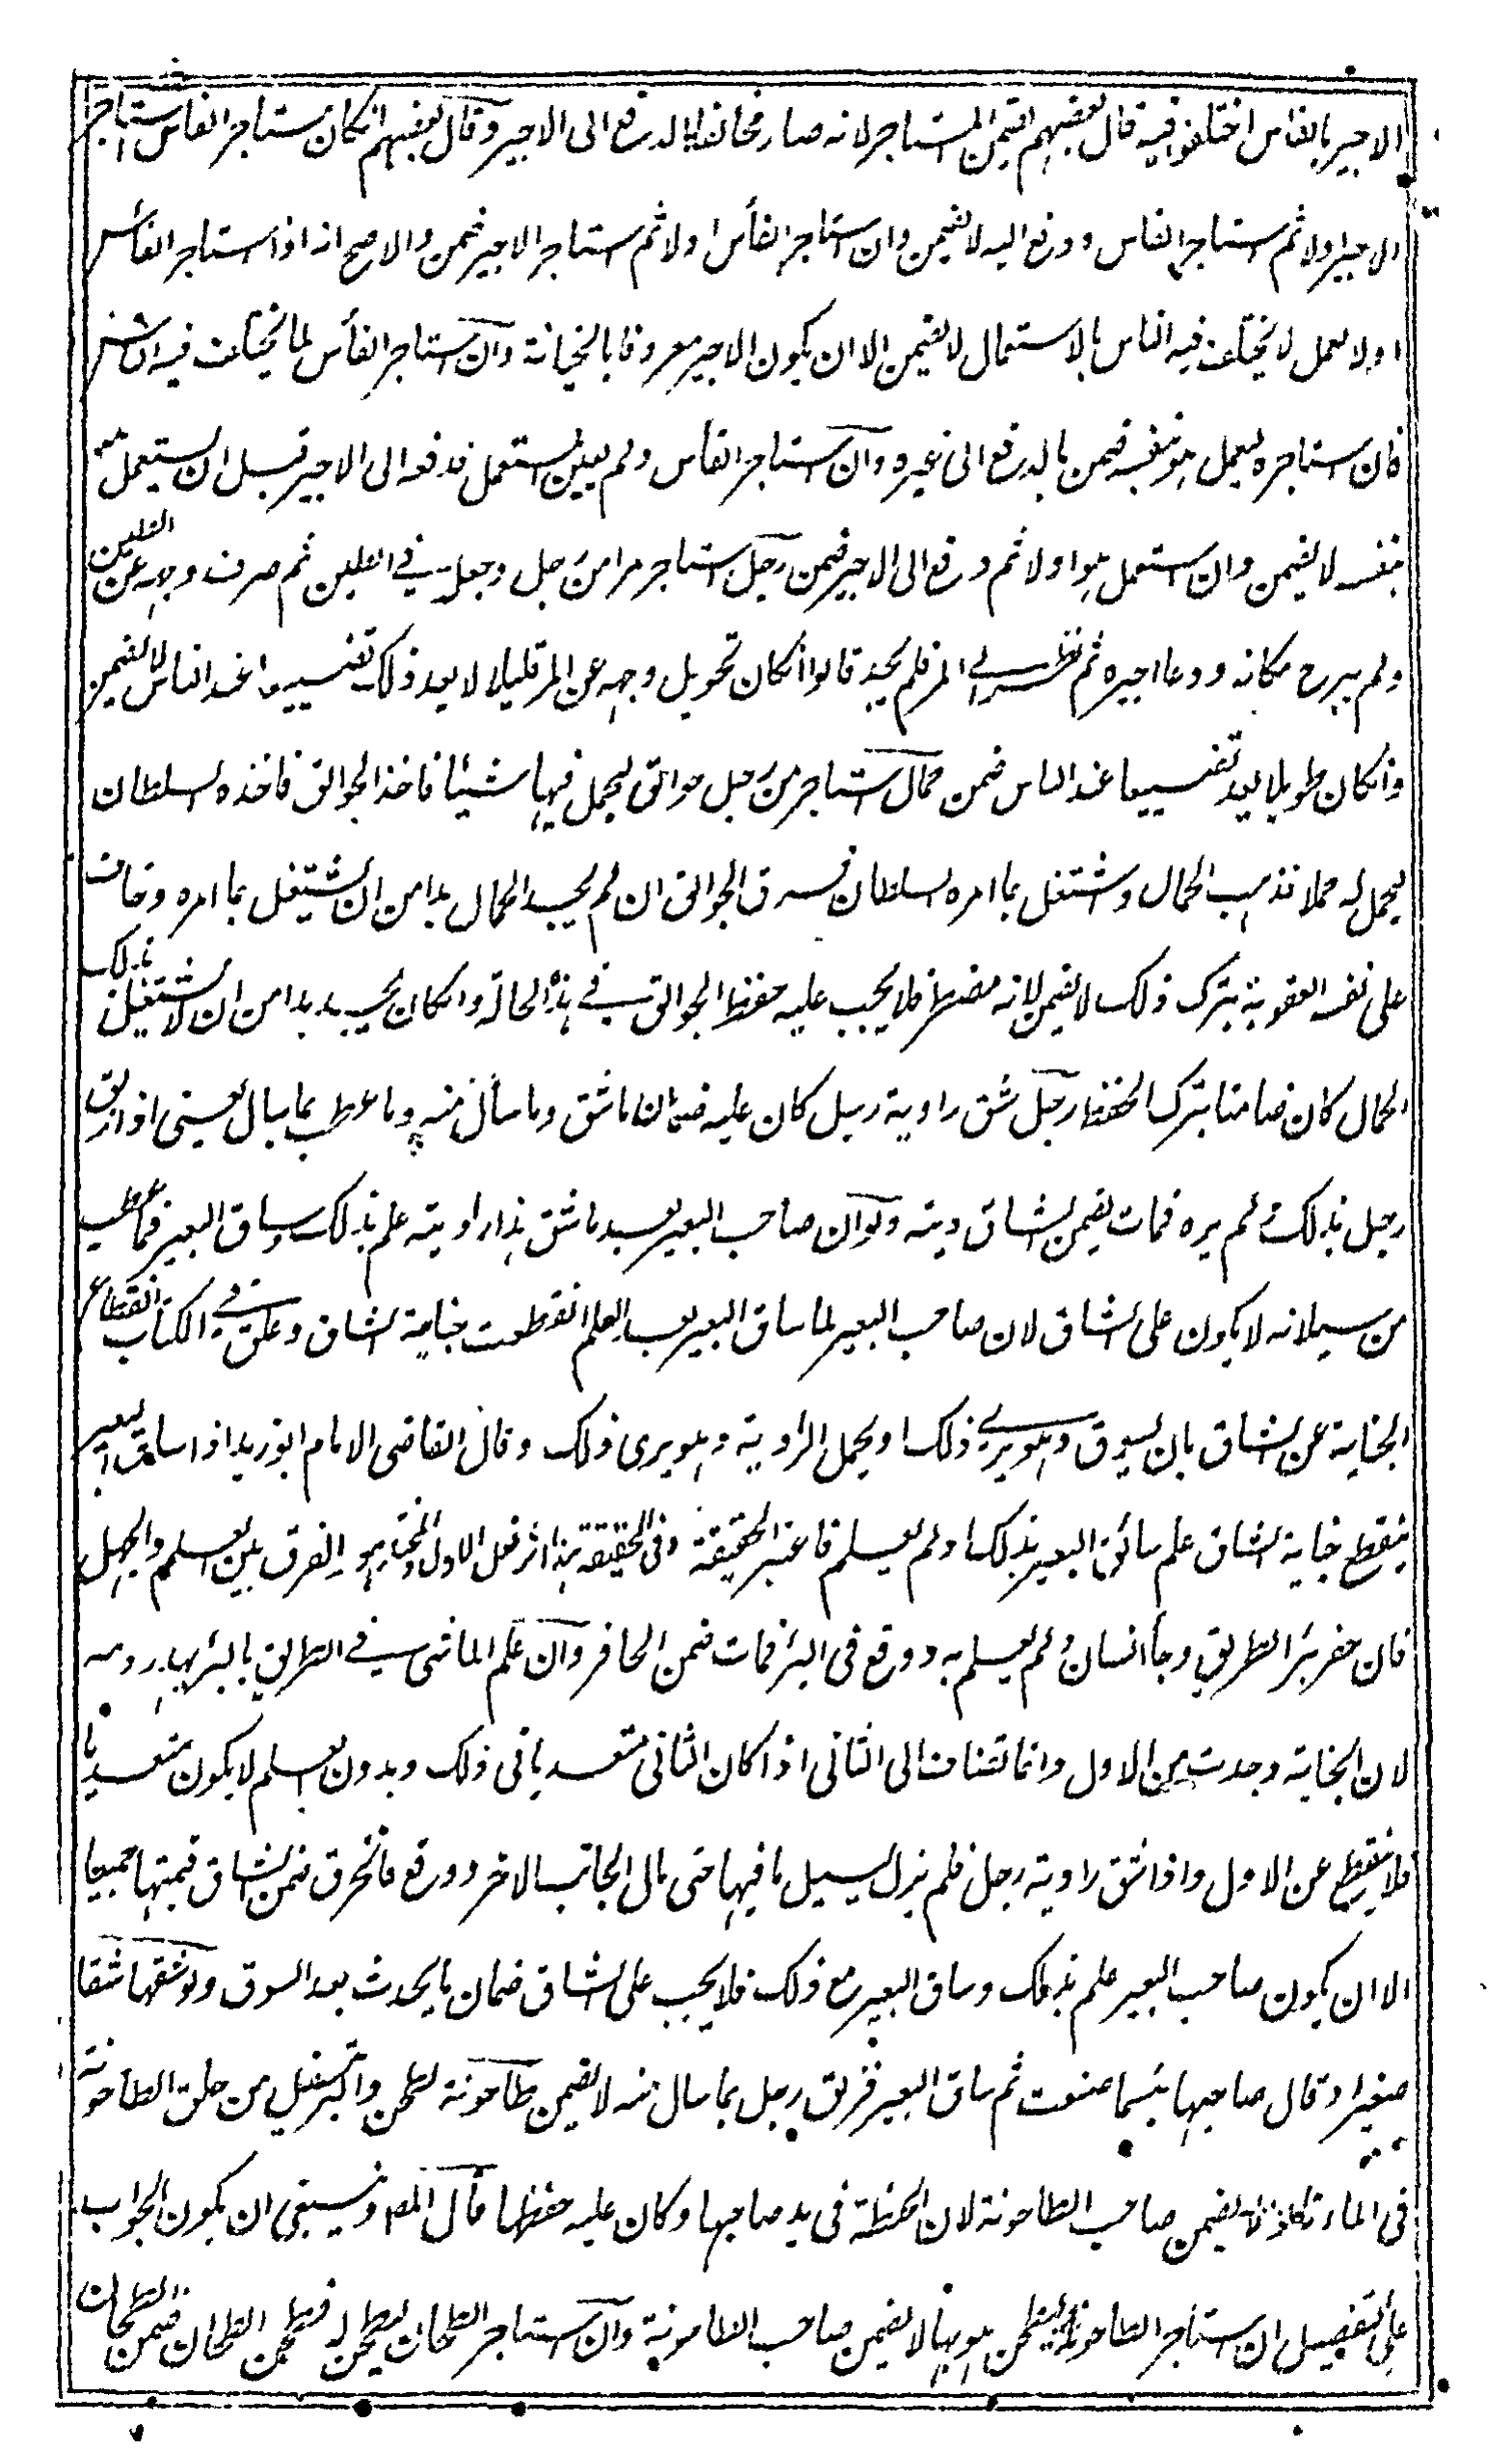 الاجير بالفاس اختلفوا فيه قال بعضهم يضمن المستاجر لانه صار مخالفا بالدفع الى الاجير وقال بعضهم انكان استاجر الفاس استاجر
الاجير اولا ثم استاجر الفاس ودفع اليه لا يضمن وان استاجر الفأس اولا ثم استاجر الاجير ضمن والاصح انه اذا استاجر الفأس
اولا لعمل لا يختلف فيه الناس بالاستعمال لا يضمن الا ان يكون الاجير معروفا بالخيانة وان استاجر الفأس لما يختلف فيه الناس
فان استاجره ليعمل هو بنفسه ضمن بالدفع الى غيره وان استاجر الفأس ولم يعين المستعمل فدفعه الى الاجير قبل ان يستعمل هو
بنفسه لا يضمن وان استعمل هو اولا ثم دفع الى الاجير ضمن رجل استاجر مرا من رجل وجعل في الطين ثم صرف وجهه عن الطين
ولم يبرح مكانه ودعا اجيره ثم نظر الى المر فلم يجد قالوا انكان تحويل وجهه عن المر قليلا لا يعد ذلك تضييعا عند الناس لا يضمن
وانكان طويلا يعد تضييعا عند الناس ضمن حمال استاجر من رجل جوالق ليحمل فيها شيئا فاخذ الجوالق فاخذه السلطان
ليحمل له حملا فذهب الحمال واشتغل بما امره السلطان فسرق الجوالق ان لم يجد الحمال بدا من ان يشتغل بما امره وخاف
على نفسه العقوبة بترك ذلك لا يضمن لانه مضطر فلا يجب عليه حفظ الجوالق في هذه الحالة وانكان يجد بدا من ان لا يشتغل بذلك
الحمال كان ضامنا بترك الحفظ رجل شق راوية رجل كان عليه ضمان ما شق وما سأل منه وما عطب بما سال يعنى اذا زلق
رجل بذلك ولم يره فمات يضمن الشاق ديته ولوان صاحب البعير بعد ما شق هذا راويته علم بذلك وساق البعير فما عطب
من سيلانه لا يكون على الشاق لان صاحب البعير لما ساق البعير بعد العلم انقطعت جناية الشاق وعلق في الكتاب انقطاع
الجناية عن الشاق بان يسوق وهو يرى ذلك او يحمل الراوية وهو يرى ذلك وقال القاضى الامام ابو زيد اذا ساق البعير
ينقطع جناية الشاق علم سائق البعير بذلك او لم يعلم فاعتبر الحقيقة وفى الحقيقة هذا اثر فعل الاول والمختار هو الفرق بين العلم والجهل
فان حفر بئرا لطريق وجأ انسان ولم يعلم به ووقع فى البئر فمات ضمن الحافر وان علم الماشى في الطريق بالبئر يهدر دمه
لان الجناية وجدت من الاول وانما تضاف الى الثانى اذا كان الثانى متعديا فى ذلك وبدون العلم لا يكون متعديا
فلا ينقطع عن الاول واذا شق راوية رجل فلم يزل يسيل ما فيها حتى مال الجانب الاخر ووقع فانخرق ضمن الشاق قيمتها جميعا
الا ان يكون صاحب البعير علم بذلك وساق البعير مع ذلك فلا يجب على الشاق ضمان ما يحدث بعد السوق ولو شقها شقا
صغيرا وقال صاحبها بئسما صنعت ثم ساق البعير فزلق رجل بما سال منه لا يضمن طاحونة لطحن والبر سقط من حلق الطاحونة
فى الماء يضمن صاحب الطاحونة لان الحنطة فى يد صاحبها وكان عليه حفظها قال المص وينبغى ان يكون الجواب
على التفصيل ان استاجر الطاحونة ليطحن هو بها لا يضمن صاحب الطاحونة وان استاجر الطحان ليطحن له فطحن الطحان ضمن الطحان